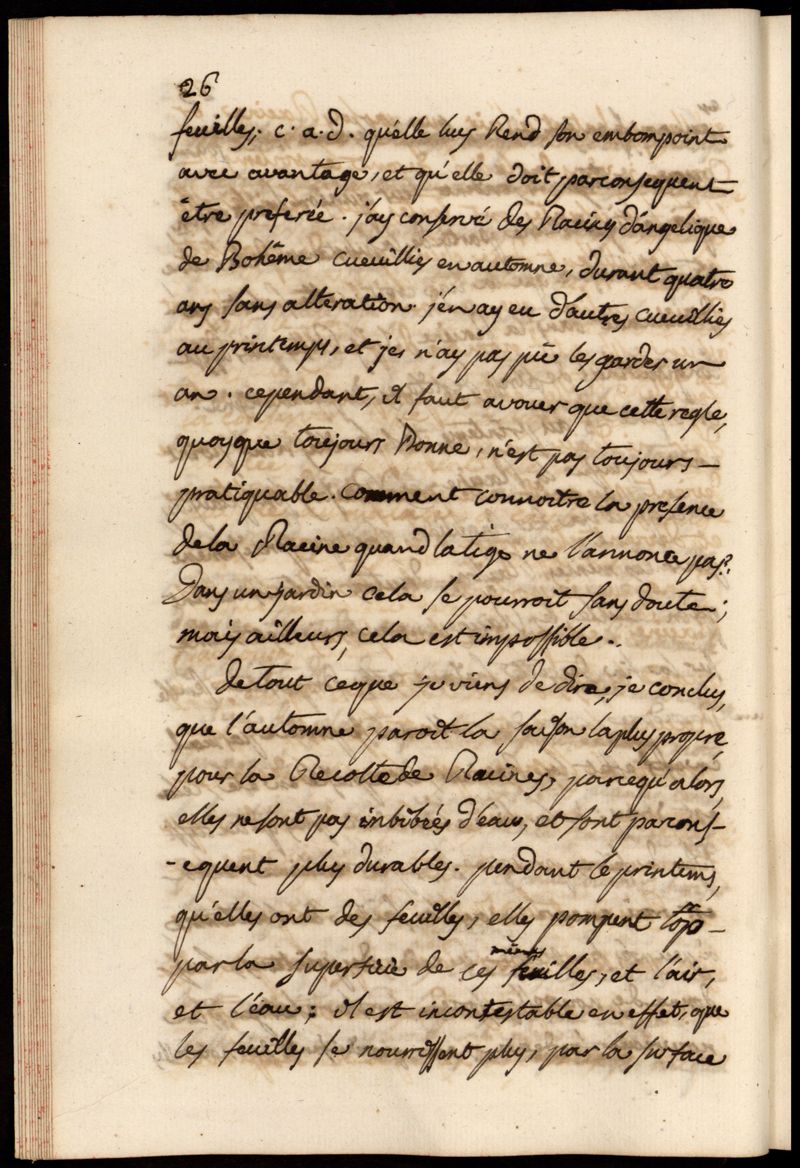 26
feuilles, c. a. d. qu'elle luy Rend son embompoint
avec avantage, et qu'elle doit parconsequent
être preferée. j'ay conservé des Racines d'angelique
de Bohême cueuillies en automne, durant quatre
ans sans alteration. j'en ay eu d'autres cueuillies
au printemps, et je n'ay pas pû les garder un
an. cependant, il faut avouer que cette regle,
quoyque toujours Bonne, n'est pas toujours
pratiquable. comment connoitre la presence
de la Racine quand la tige ne l'annonce pas?
Dans un jardin cela se pourroit sans doute;
mais ailleurs, cela est impossible..
de tout ceque je viens de dire, je conclus,
que l'automne paroît la saison la plus propre,
pour la Recolte de Racines, parcequ'alors,
elles ne sont pas imbibées d'eau, et sont parcons-
-equent plus durables. pendant le printems,
qu'elles ont des feuilles, elles pompent
par la superficie de ces mêmes feuilles, et l'air,
et l'eau; il est incontestable en effet, que
les feuilles se nourrissent plus, par la surface